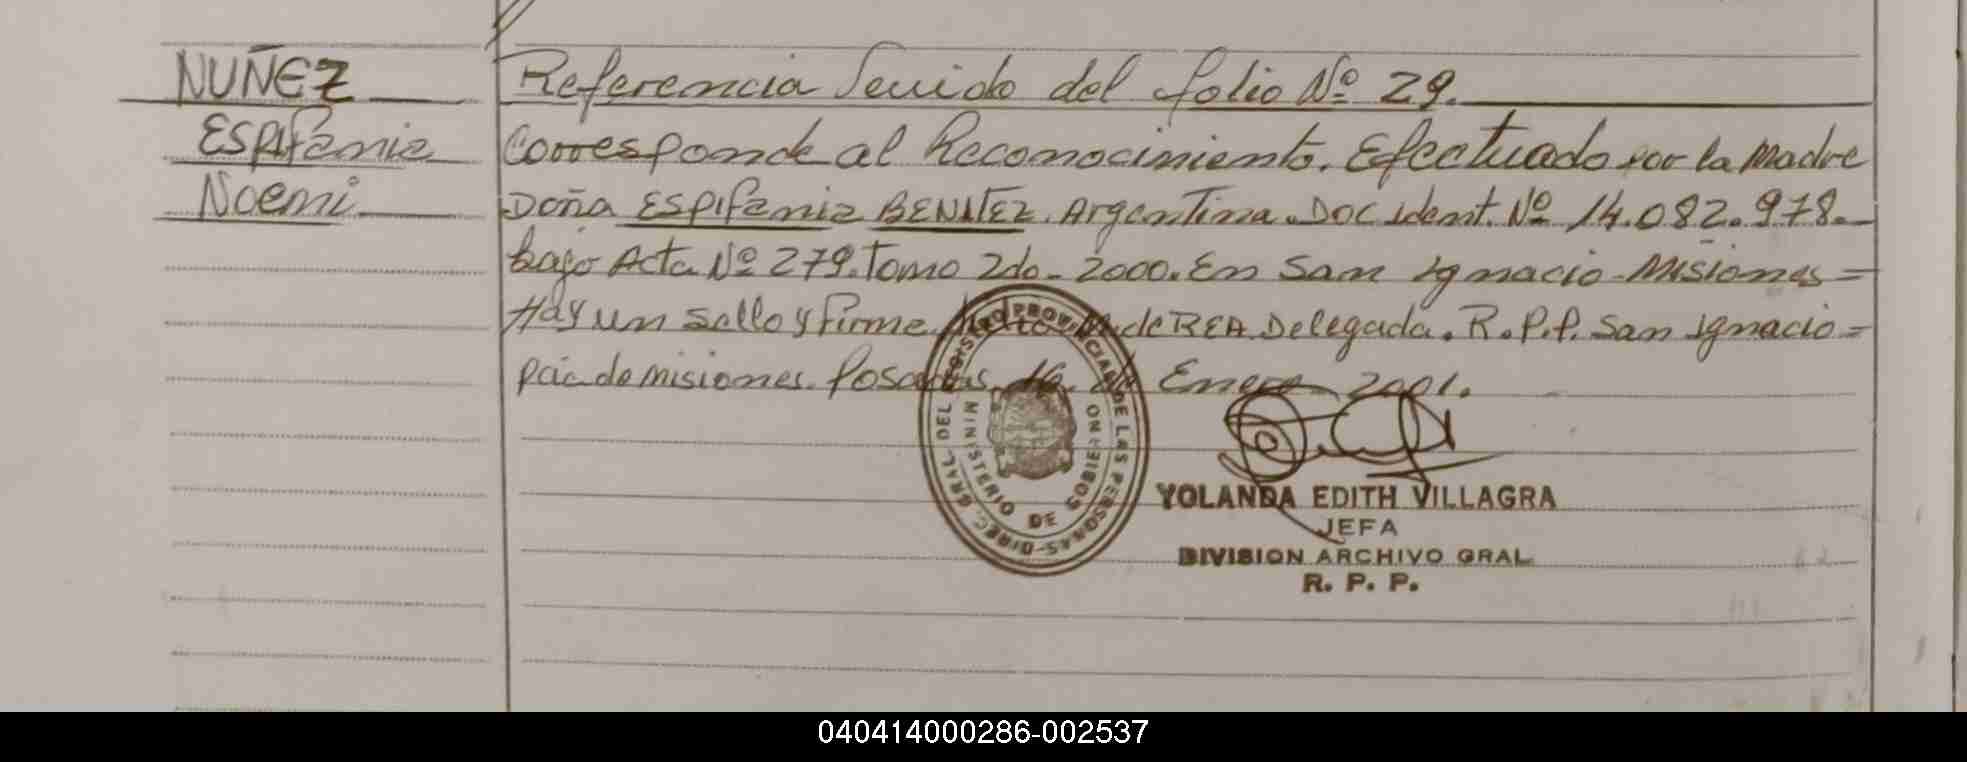 NUÑEZ
ESPIfania
Noemi
Referencia Seuido del folio Nº 29.
Corresponde al Reconocimiento. Efectuado por la Madre
Doña ESPIfania BENITEZ. Argentina. Doc ident. Nº 14.082.978.
bajo Acta Nº 279. Tomo 2do - 2000. En San Ignacio - Misiones =
Hay un sello y firma de REA. Delegada. R.P.P. San Ignacio =
Pcia de misiones. Posadas, 16 de Enero 2001.
DIREC. GRAL. DEL REGISTRO PROVINCIAL DE LAS PERSONAS
MINISTERIO DE GOBIERNO
YOLANDA EDITH VILLAGRA
JEFA
DIVISION ARCHIVO GRAL
R. P. P.
040414000286-002537